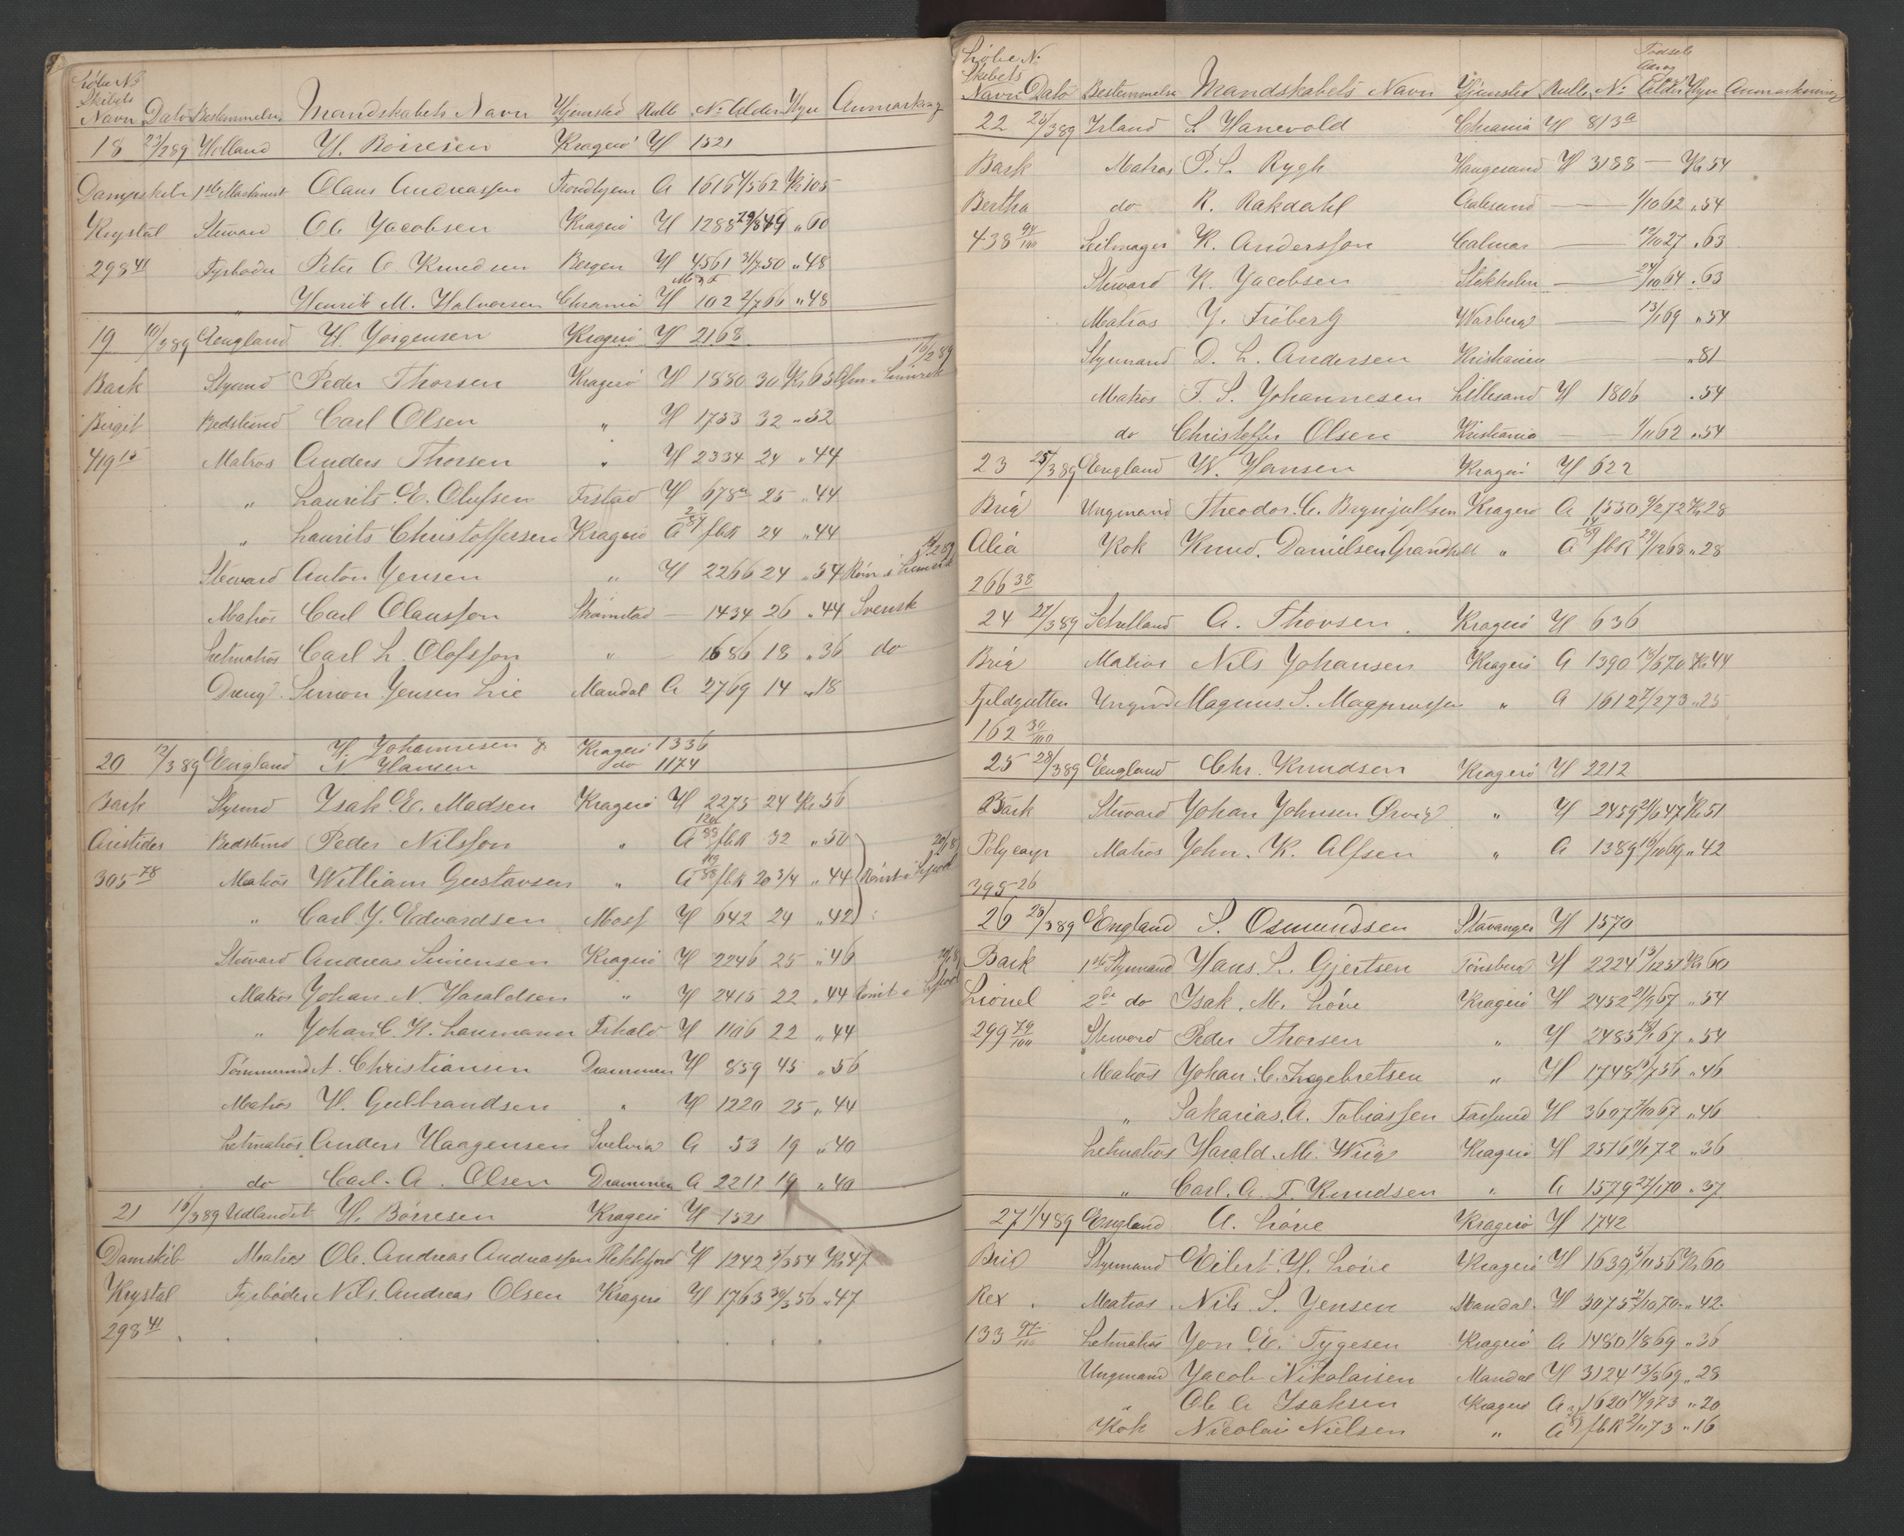 Løbe No
Skibets
Navn Dato Bestemmelse Mandskabets Navn Hjemsted Rulle No Alder Hyre Anmærkning
18 23/2 89 Holland H. Börresen Kragerö H 1521
Dampskib 1ste Maskinist Olaus Andreassen Trondhjem A 1616 4/5 62 Kr 105
Krystal Steward Ole Jacobsen Kragerö H 1288 29/8 49 " 60
298 41 Fyrbøder Peter C Knudsen Bergen H 4561 3/7 50 " 48
" Henrik M. Halvorsen Chrania H 102 2/7 66 " 48
19 11/3 89 England H. Jörgensen Kragerö H 2168
Bark Stymd Peder Thorsen Kragerö H 1880 30 Kr 63
Birgit Bedstmd Carl Olsen " H 1753 32 " 52
419 15 Matros Anders Thorsen " H 2334 24 " 44
" Laurits E. Olufsen Frstad H 678a 25 " 44
" Laurits Christoffersen Kragerö A fbk 24 " 44
Steward Anton Jensen " H 2266 24 " 54 Römt i
Matros Carl Olausson Strömstad — 1434 26 " 44 Svensk
Letmatros Carl L. Olofsson " — 1686 18 " 36 do
Dreng Simon Jensen Lie Mandal A 2769 14 " 18
H. Johannesen & Kragerö 1336
20 12/3 89 England N Hansen do 1174
Bark Stymd Isak E. Madsen Kragerö H 2275 24 Kr 56
Aristides Bedstmd Peder Nilsson " A fbk 32 " 50
305 78 Matros William Gustavsen " A fbk 20 3/4 " 44 Römt i
" Carl J. Edvardsen Moss H 642 24 " 42
Steward Andreas Simensen Kragerö H 2246 25 " 46
Matros Johan N. Haraldsen " H 2415 22 " 44 Römt i
" Johan C. W. Laumann Frhald H 1106 22 " 44
Tömmermd A. Christiansen Drammen H 859 45 " 56
Matros H. Gulbrandsen " H 1220 25 " 44
Letmatros Anders Haagensen Svelvig A 53 19 " 40
do Carl. A. Olsen Drammen A 2211 19 " 40
21 16/3 89 Udlandet H. Börresen Kragerö H 1521
Damskib Matros Ole Andreas Andreassen Flekkefjord H 1242 3/3 54 Kr 47
Krystal Fyrbøder Nils. Andreas Olsen Kragerö H 1763 30/3 56 " 47
298 41
Løbe No
Skibets Födsels
Navn Dato Bestemmelse Mandskabets Navn Hjemsted Rulle No Alder Hyre Anmærkning
22 23/3 89 Irland L Hanevold Chrania H 813a
Bark Matros P. L. Rygh Haugesund H 3188 — Kr 54
Bertha do K. Rakdahl Aalesund — 1/10 62 " 54
438 94/100 Seilmager K. Andersson Calmar — 12/10 27 " 63
Steward K. Jacobsen Stokholm — 24/10 64 " 63
Matros J. Fröberg Warberg — 13/1 69 " 54
Styrmand D. L. Andersen Kristiania — " 81
Matros T. S. Johannesen Lillesand H 1806 " 54
do Christoffer Olsen Kristiania — 1/11 62 " 54
23 25/3 89 England W. Hansen Kragerö H 622
Brig Ungmand Theodor. C. Brynjulfsen Kragerö A 1550 9/2 72 Kr 28
Alia Kok Knud. Danielsen Grandholt " A fbk 29/12 68 " 28
266 38
24 27/3 89 Schetland A. Thovsen Kragerö H 636
Brig Matros Nils Johansen Kragerö A 1390 18/6 70 Kr 44
Fjeldgutten Ungmd Magnus. S. Magnussen " A 1612 7/2 73 " 25
162 30/100
25 28/3 89 England Chr. Knudsen Kragerö H 2212
Bark Steward Johan Johnsen Ørvig " H 2459 21/6 47 Kr 51
Polycarp Matros John. K. Alfsen " A 1389 19/10 69 " 42
395 26
26 29/3 89 England S. Osmundsen Stavanger H 1570
Bark 1ste Styrmand Hans. L. Gjertsen Tönsberg H 2224 13/12 51 Kr 60
Lionel 2de do Isak. M. Löve Kragerö H 2452 21/9 67 " 54
299 79/100 Steward Peder Thorsen " H 2485 67 " 54
Matros Johan. C. Ingebretsen " H 1748 9/7 56 " 46
" Sakarias. A. Tobiassen Farsund H 3607 7/10 67 " 46
Letmatros Harald. M. Wiig Kragerö H 2516 11/1 72 " 36
" Carl. A. T. Knudsen " A 1579 27/1 70 " 37
27 1/4 89 England A. Löve Kragerö H 1742
Brig Styrmand Eilert. H. Löve Kragerö H 1639 5/11 56 Kr 60
Rex Matros Nils. S. Jensen Mandal H 3075 2/10 70 " 42
133 97/100 Letmatros Jon E. Tygesen Kragerö A 1480 1/8 69 " 36
Ungmand Jacob Nikolaisen Mandal H 3124 13/3 69 " 28
" Ole A Isaksen Kragerö A 1620 14/9 73 " 20
Kok Nicolai Nielsen " A fbk 2/11 73 " 16